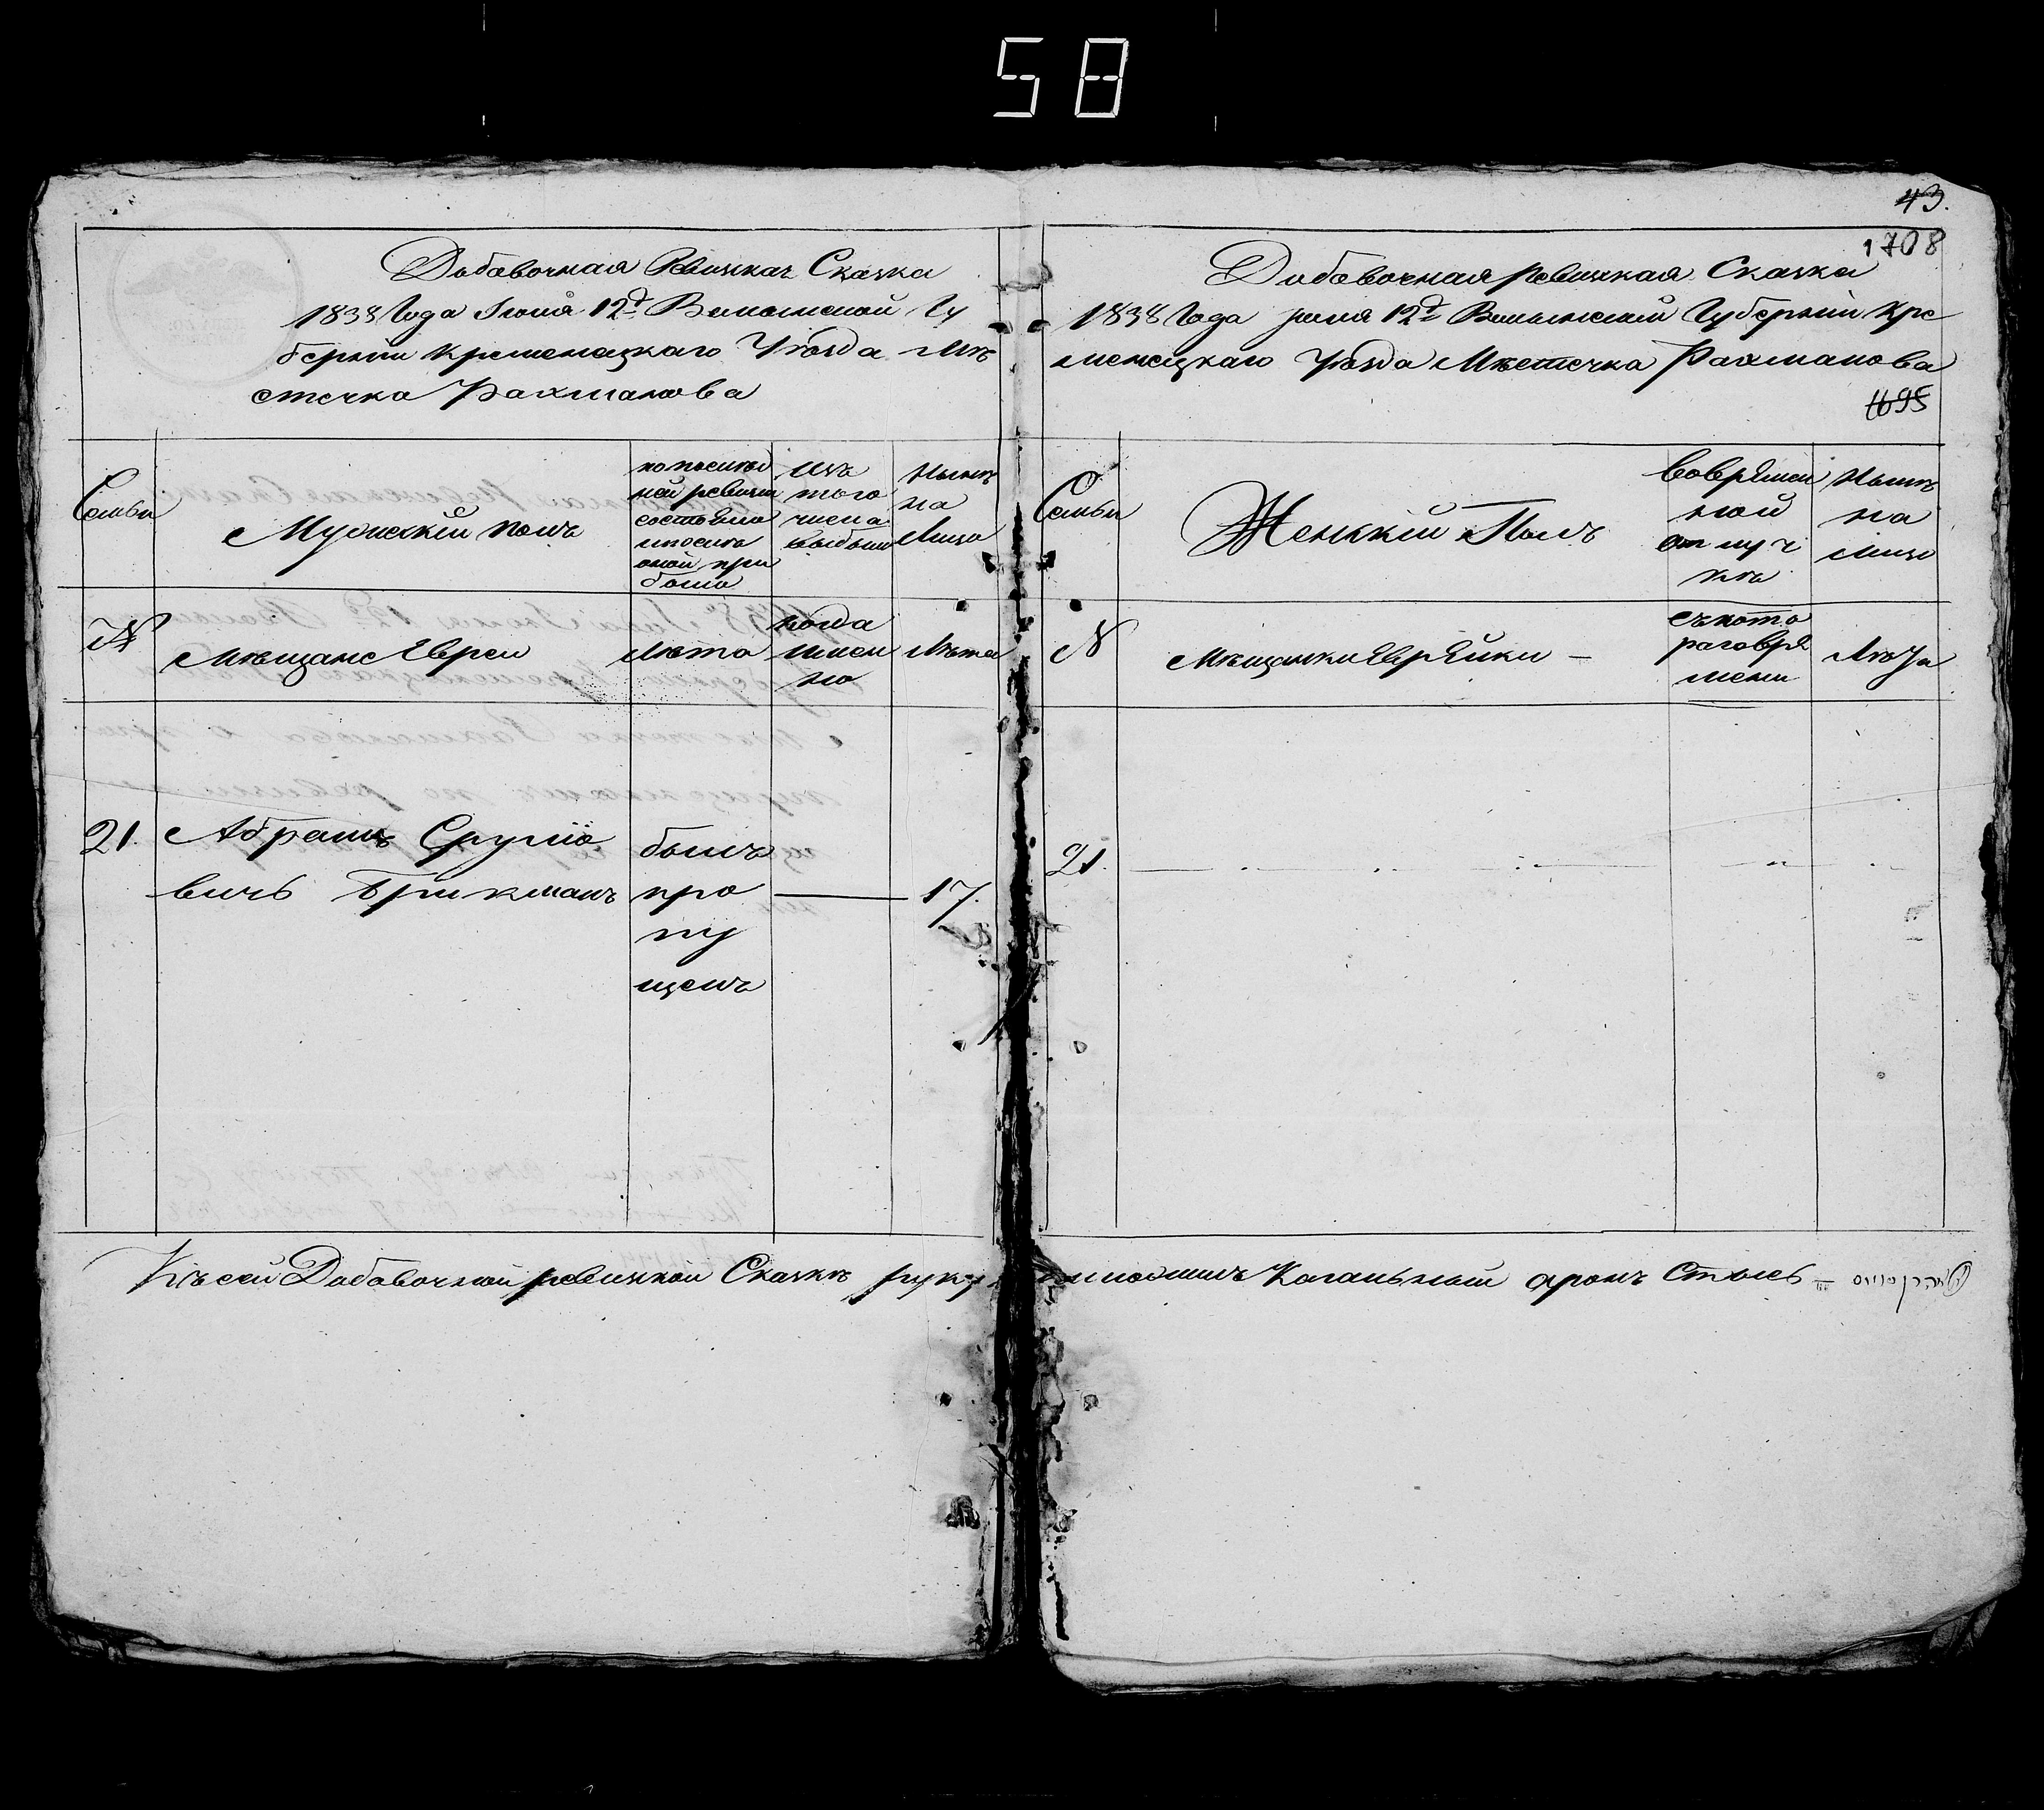 58
43.
1708
Добавочная Ревизкая Сказка
1838 Года Iюня 12д Волынской Гу
берніи Кременецкаго Уѣзда Мѣ
стечка Рахманова
Семьи
Мужискій полъ
по послѣд
ней ревизіи
состояло
и после
оной при
было
Изъ
того
числа
выбыло
Нынѣ
на
Лицо
№
Мѣщане Евреи
Лѣта
когда
имен
но
Лѣта
21.
Абрамъ Сруліо
вичь Брикманъ
былъ
про
пу
щенъ
17.
Добавочная ревизкая Сказка
1838 Года июня 12д Волынской Губерніи Кре
менецкаго Уѣзда Мѣстечка Рахманова
1695
Семьи
Женскій Полъ
Вовремен
ной
отлуч
кѣ
Нынѣ
на
лицо
N
Мѣщанки Еврейки —
съкото
раговре
мени
Лѣта
21.
Къ сей Добавочной ревизкой Сказкѣ руку приложилъ Кагальный аронъ Стысь =